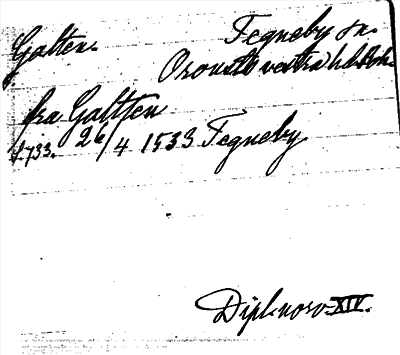 Galten. Tegneby sn.
Orousts vestra hd. Boh.
fra Galtten
s. 733. 26/4 1533 Tegneby
Dipl. norv. XIV.